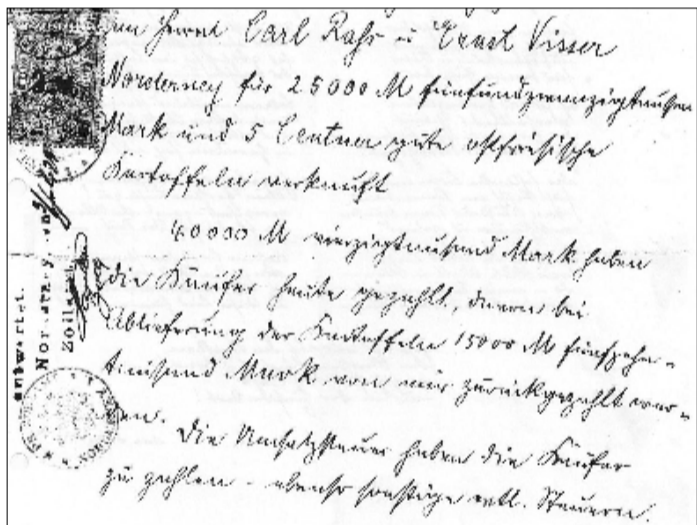 den Herren Carl Rass u Ernst Visser
Norderney für 25000 M fünfundzwanzigtausend
Mark und 5 Centner gute ostfriesische
Kartoffeln verkauft
40000 M vierzigtausend Mark haben
die Käufer heute gezahlt, wovon bei
Ablieferung der Kartoffeln 15000 M fünfzehn-
tausend Mark von mir zurückgezahlt wer-
den.
Die Umsatzsteuer haben die Käufer
zu zahlen - ebenso sonstige evtl. Steuern.
entwertet.
Norderney, den
Zollamt